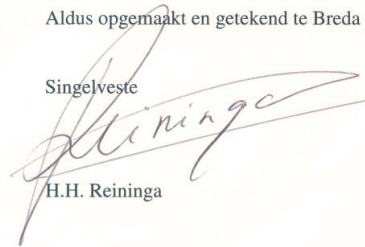 Aldus opgemaakt en getekend te Breda
Singelveste
Reininga
H.H. Reininga